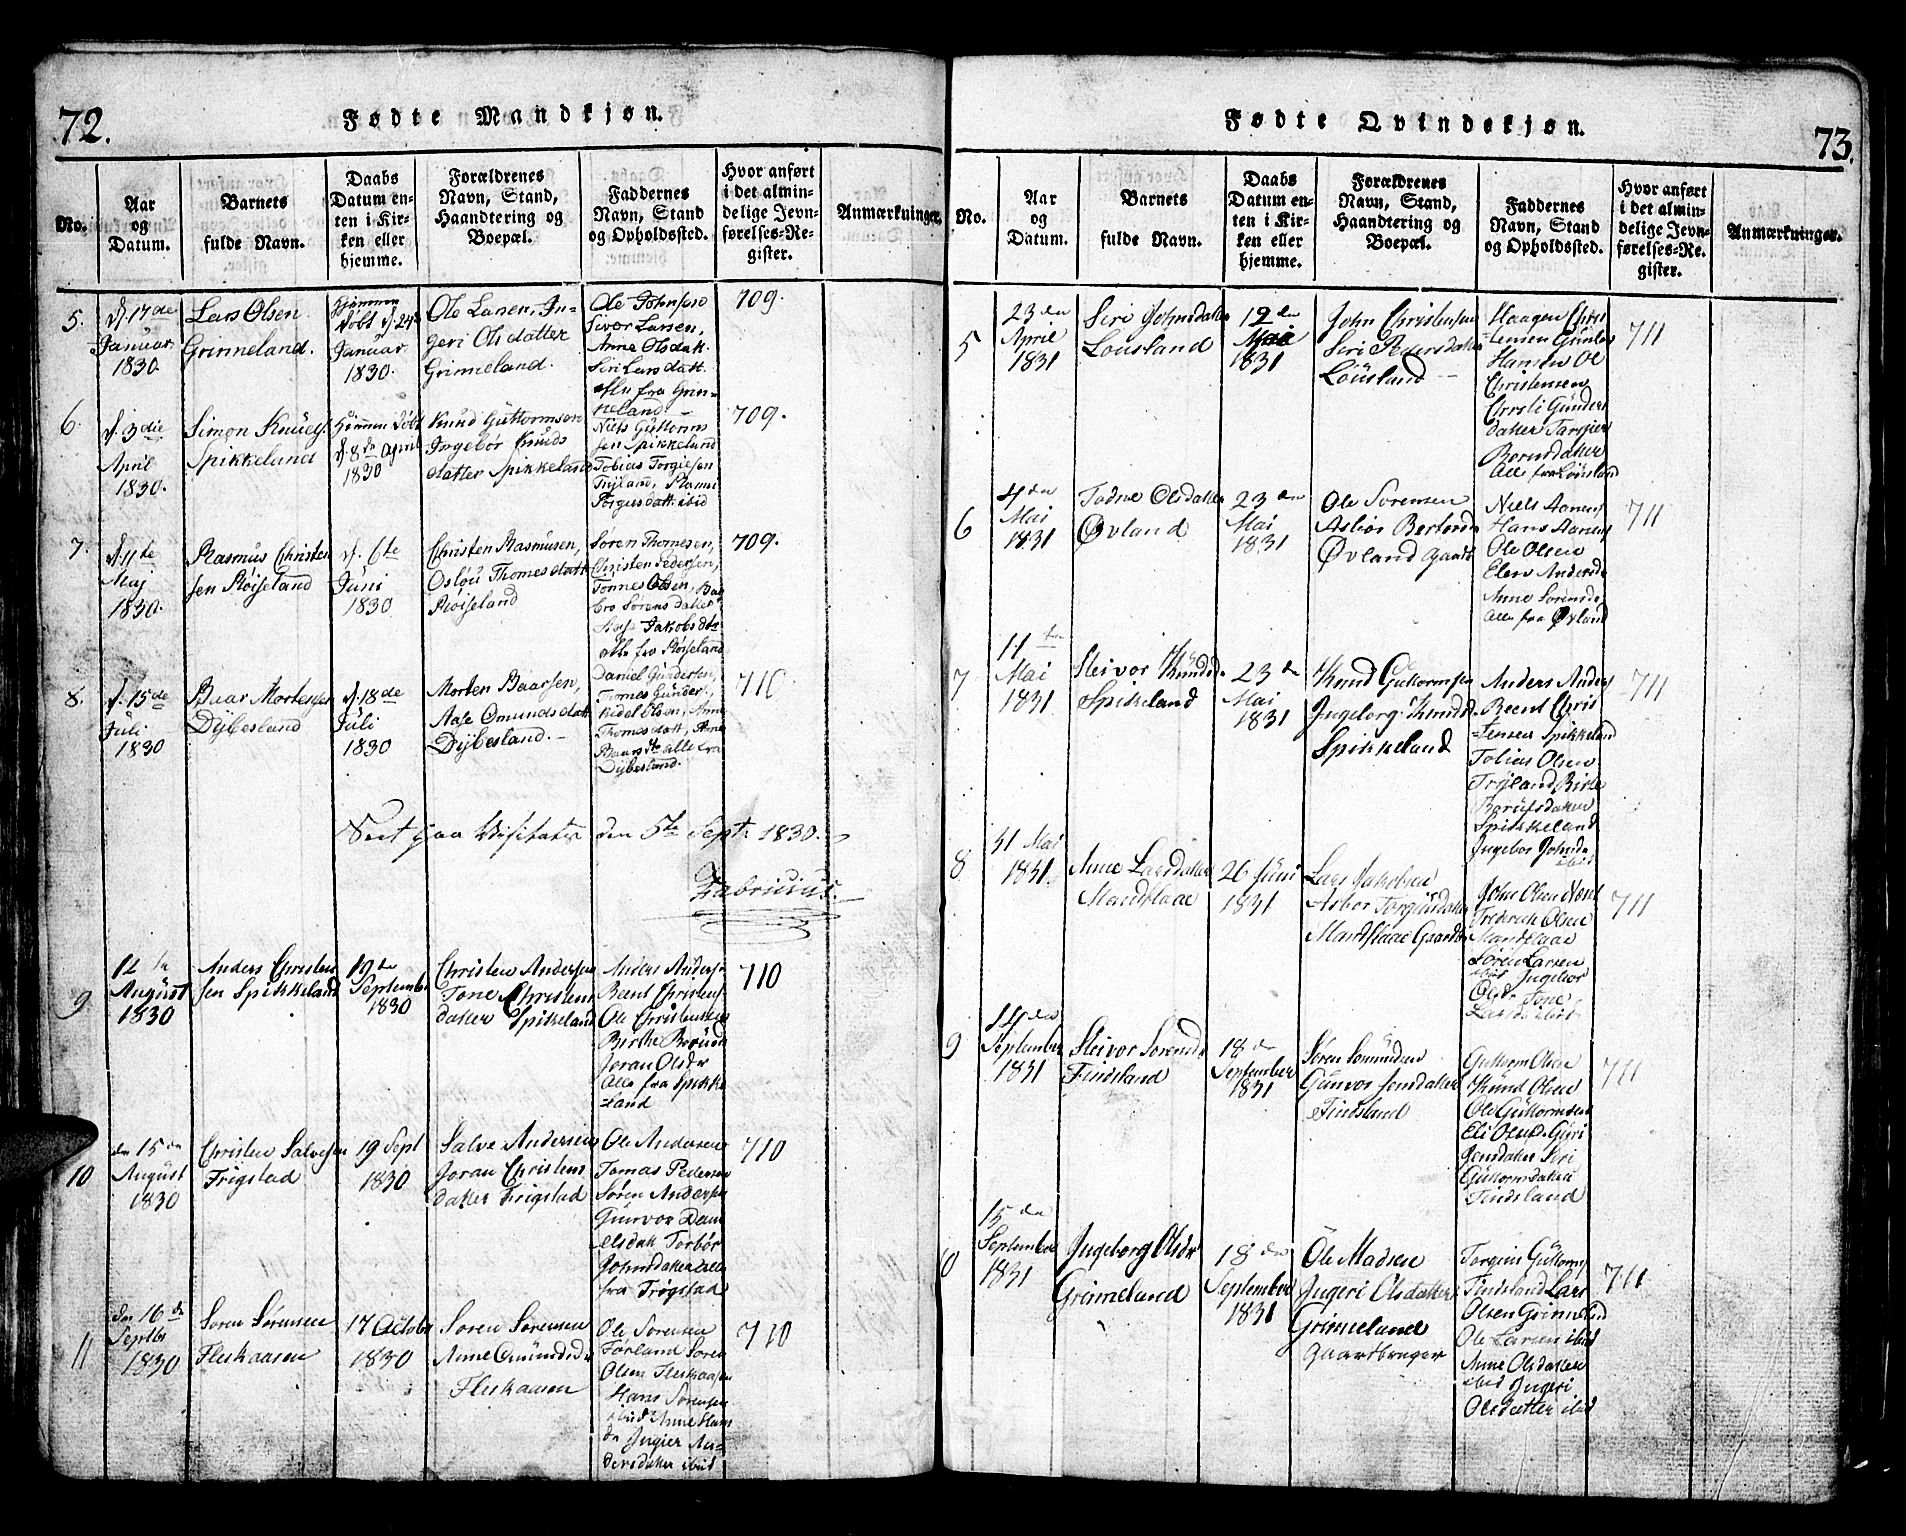 72.
Fødte Mandkjøn.
No.
Aar
og
Datum.
Barnets
fulde Navn.
Daabs
Datum en-
ten i Kir-
ken eller
hjemme.
Forældrenes
Navn, Stand,
Haandtering og
Boepæl.
Faddernes
Navn, Stand
og Opholdssted.
Hvor anført
i det almin-
delige Jevn-
førelses-Re-
gister.
Anmærkninger.
5.
d. 17de
Januar
1830.
Lars Olsen
Grimeland.
hjemme
døbt d. 24de
Januar
1830.
Ole Larsen, In-
geri Olsdatter
Grimeland.
Ole Johnsen
Sivor Larsen,
Anne Olsdatt
Siri Larsdatt.
alle fra Grim-
meland.
709.
6.
d. 3die
April
1830.
Simon Knuds
Spikkeland
hjemme døbt
d. 8de April
1830
Knud Guttormsen
Ingebør Knuds
datter Spikkeland
Niels Guttorms
sen Spikkeland
Tobias Torgiesen
Tryland,
Torgusdatt. ibid
709.
7.
d. 11te
Maj
1830.
Rasmus Christen
sen Røiseland
d. 6te
Juni
1830
Christen Rasmusen,
Oslou Thomesdatt
Røiseland
Søren Thomesen,
Christen Pedersen,
Tønnes Olsen, Bar
bro Sørensdatter
Aase Jakobsdtr
alle fra Røiseland
709.
8.
d. 15de
Juli
1830
Baar Mortensen
Dybesland
d. 18de
Juli
1830
Morten Baarsen,
Aase Omundsdatt
Dybesland.
Daniel Gundersen,
Tomes Gunders.,
Kidel Olsen, Anne
Thomesdatt, Anne
Baarsdtr alle fra
Dybesland.
710
Seet paa Visitatz den 5te Septr 1830.
Fabricius.
9
12te
August
1830
Anders Christen
sen Spikkeland
19de
Septembr
1830
Christen Andersen
Tone Christens
datter Spikeland
Anders Andersn
Beent Christens
Ole Christensen
Birthe Berousd
Joran Olsdr
Alle fra Spikke
land
710
10
den 15de
August
1830
Christen Salvesen
Frigstad
19 Sept
1830
Salve Andersen
Joran Christens
datter Frigstad
Ole Andersen
Tomas Pedersen
Søren Andersen
Gunvor Dani
elsdatt Torbør
Johnsdatter alle
fra Frøgstad
710
11
den 16de
Septbr
1830
Søren Sørensen
Fleskaasen
17 Octobr
1830
Søren Sørensen
Anne Omundsdr
Fleskaasen
Ole Sørensen
Førland Søren
Olsen Fleskaasen
Hans Sørensen
ibid Anne Ham
dr Ingier An-
dersdatter ibid
710
73.
Fødte Qvindekjøn.
No.
Aar
og
Datum.
Barnets
fulde Navn.
Daabs
Datum en-
ten i Kir-
ken eller
hjemme.
Forældrenes
Navn, Stand,
Haandtering og
Boepæl.
Faddernes
Navn, Stand
og Opholdssted.
Hvor anført
i det almin-
delige Jevn-
førelses-Re-
gister.
Anmærkninger.
5
23de
April
1831
Siri Johnsdatter
Lousland
12te
Mai
1831
John Christensen
Siri Pedersdatter
Lousland
Haagen Chris
tensen Gunder
Hansen Ole
Christensen
Christi Gunders
datter Tarjier
Berousdatter
Alle fra Lousland
711
6
4de
Mai
1831
Todne Olsdatter
Øvland
23de
Mai
1831
Ole Sørensen
Asbør Bertersdr
Øvland Gaardb
Niels Aanens
Hans Aanens
Ole Olsen
Elen Andersdr
Anne Sørensdr
Alle fra Øvland
711
7
11te
Mai
1831
Sleivor Knudsd
Spikeland
23de
Mai
1831
Knud Guttormsen
Ingeborg Knudsd
Spikkeland
Anders Anders
Beent Chris
tensen Spikkeland
Tobias Olsen
Tryland Birte
Berousdatter
Spikkeland
Ingebor Johnsdr
ibid
711
8
31 Mai
1831
Anne Larsdatter
Mandflaae
26 Juni
1831
Lars Jakobsen
Asbor Torgiusdatter
Mandflaae Gaardbr
John Olsen
Frederich Olsen
Mandflaae
Søren Larsen
ibid Ingebor
Olsdr Tone
Larsdr ibid
711
9
14de
September
1831
Sleivor Sørensdr
Findsland
18de
September
1831
Søren Somundsen
Gunvor Jensdatter
Findsland
Guttorm Olsen
Knud Olsen
Ole Guttormsen
Eli Olsdr Guri
Jensdatter Siri
Guttormsdatter
Findsland
711
10
15de
September
1831
Ingeborg Olsdr
Grimeland
18de
September
1831
Ole Madsen
Ingeri Olsdatter
Grimeland
Gaardbruger
Torgius Guttorms
Findsland Lars
Olsen Grimeland
Ole Larsen ibid
Anne Olsdatter
ibid Ingeri
Olsdatter ibid
711